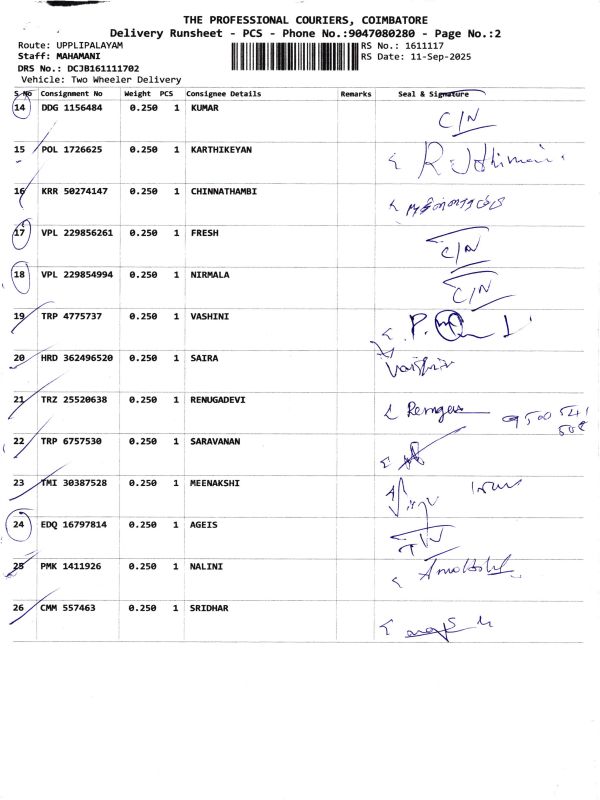 THE PROFESSIONAL COURIERS, COIMBATORE
Delivery Runsheet - PCS - Phone No.:9047080280 - Page No.:2
Route: UPPLIPALAYAM
RS No.: 1611117
Staff: MAHAMANI
RS Date: 11-Sep-2025
DRS No.: DCJB161111702
Vehicle: Two Wheeler Delivery
S No Consignment No Weight PCS Consignee Details Remarks Seal & Signature
14 DDG 1156484 0.250 1 KUMAR C/N
15 POL 1726625 0.250 1 KARTHIKEYAN
16 KRR 50274147 0.250 1 CHINNATHAMBI
17 VPL 229856261 0.250 1 FRESH C/N
18 VPL 229854994 0.250 1 NIRMALA C/N
19 TRP 4775737 0.250 1 VASHINI
20 HRD 362496520 0.250 1 SAIRA
21 TRZ 25520638 0.250 1 RENUGADEVI
22 TRP 6757530 0.250 1 SARAVANAN
23 TMI 30387528 0.250 1 MEENAKSHI
24 EDQ 16797814 0.250 1 AGEIS
25 PMK 1411926 0.250 1 NALINI
26 CMM 557463 0.250 1 SRIDHAR